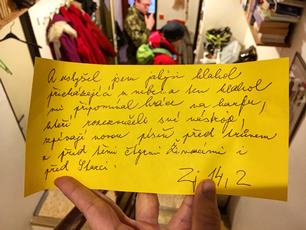 A uslyšel jsem jakýsi hlahol
přicházející z nebe a ten hlahol
mi připomínal hráče na harfu,
kteří rozezvučeli své
zpívají novou píseň před trůnem
a před těmi čtyřmi Živoucími i
před Starci.
Zj 14, 2